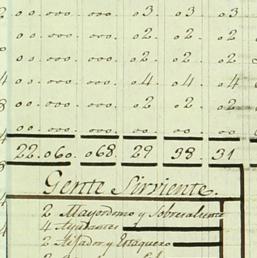 00. 000. 000. 03. 03. 03
00. 000. 000. 02. 02. 02
00. 000. 000. 02. 02. 02
00. 000. 000. 04. 04. 04
00. 000. 000. 02. 02. 02
00. 000. 000. 00. 00. 00
22. 060. 068. 29 38 31
Gente Sirviente.
2 Mayordomo y Sobresaliente
4 Ayudantes
2 Atajador y Estaquero